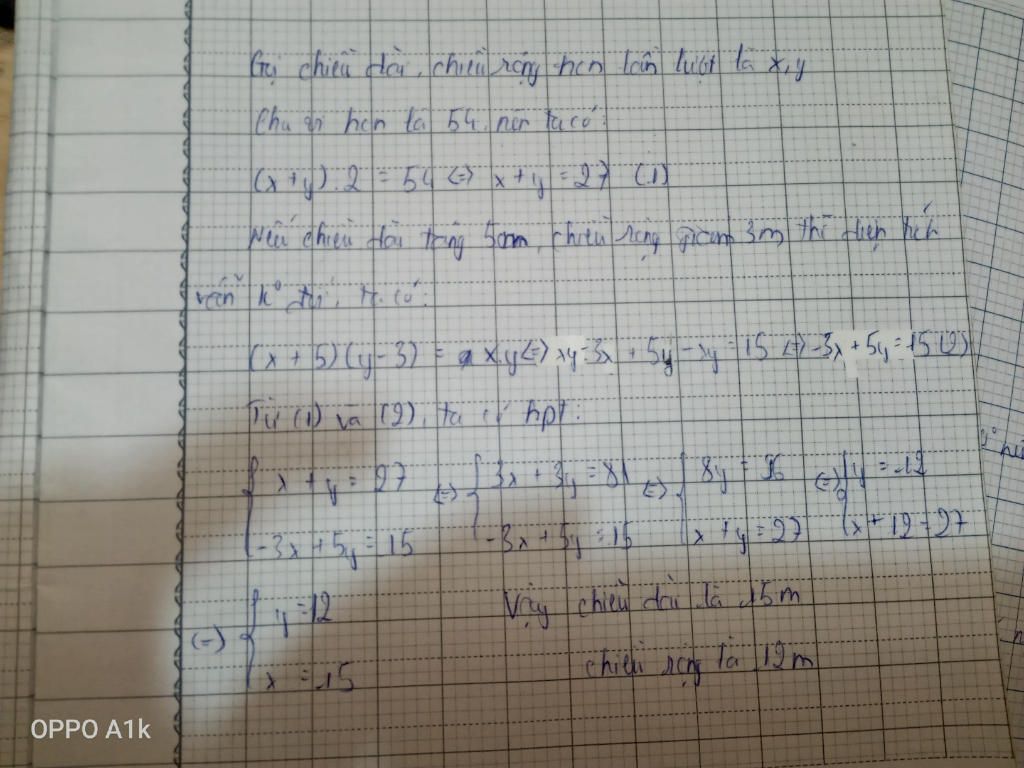 Gọi chiều dài, chiều rộng hcn lần lượt là x, y
Chu vi hcn là 54, nên ta có:
(x + y) . 2 = 54 <=> x + y = 27 (1)
Nếu chiều dài tăng 5m, chiều rộng giảm 3m thì diện tích
vẫn k° đổi, ta có:
(x + 5) (y - 3) = xy <=> xy - 3x + 5y - xy = 15 <=> -3x + 5y = 15 (2)
Từ (1) và (2), ta có hpt:
{ x + y = 27 <=> { 3x + 3y = 81 <=> { 8y = 96 <=> { y = 12
-3x + 5y = 15 -3x + 5y = 15 x + y = 27 x + 12 = 27
<=> { y = 12 Vậy chiều dài là 15m
x = 15 chiều rộng là 12m
OPPO A1k